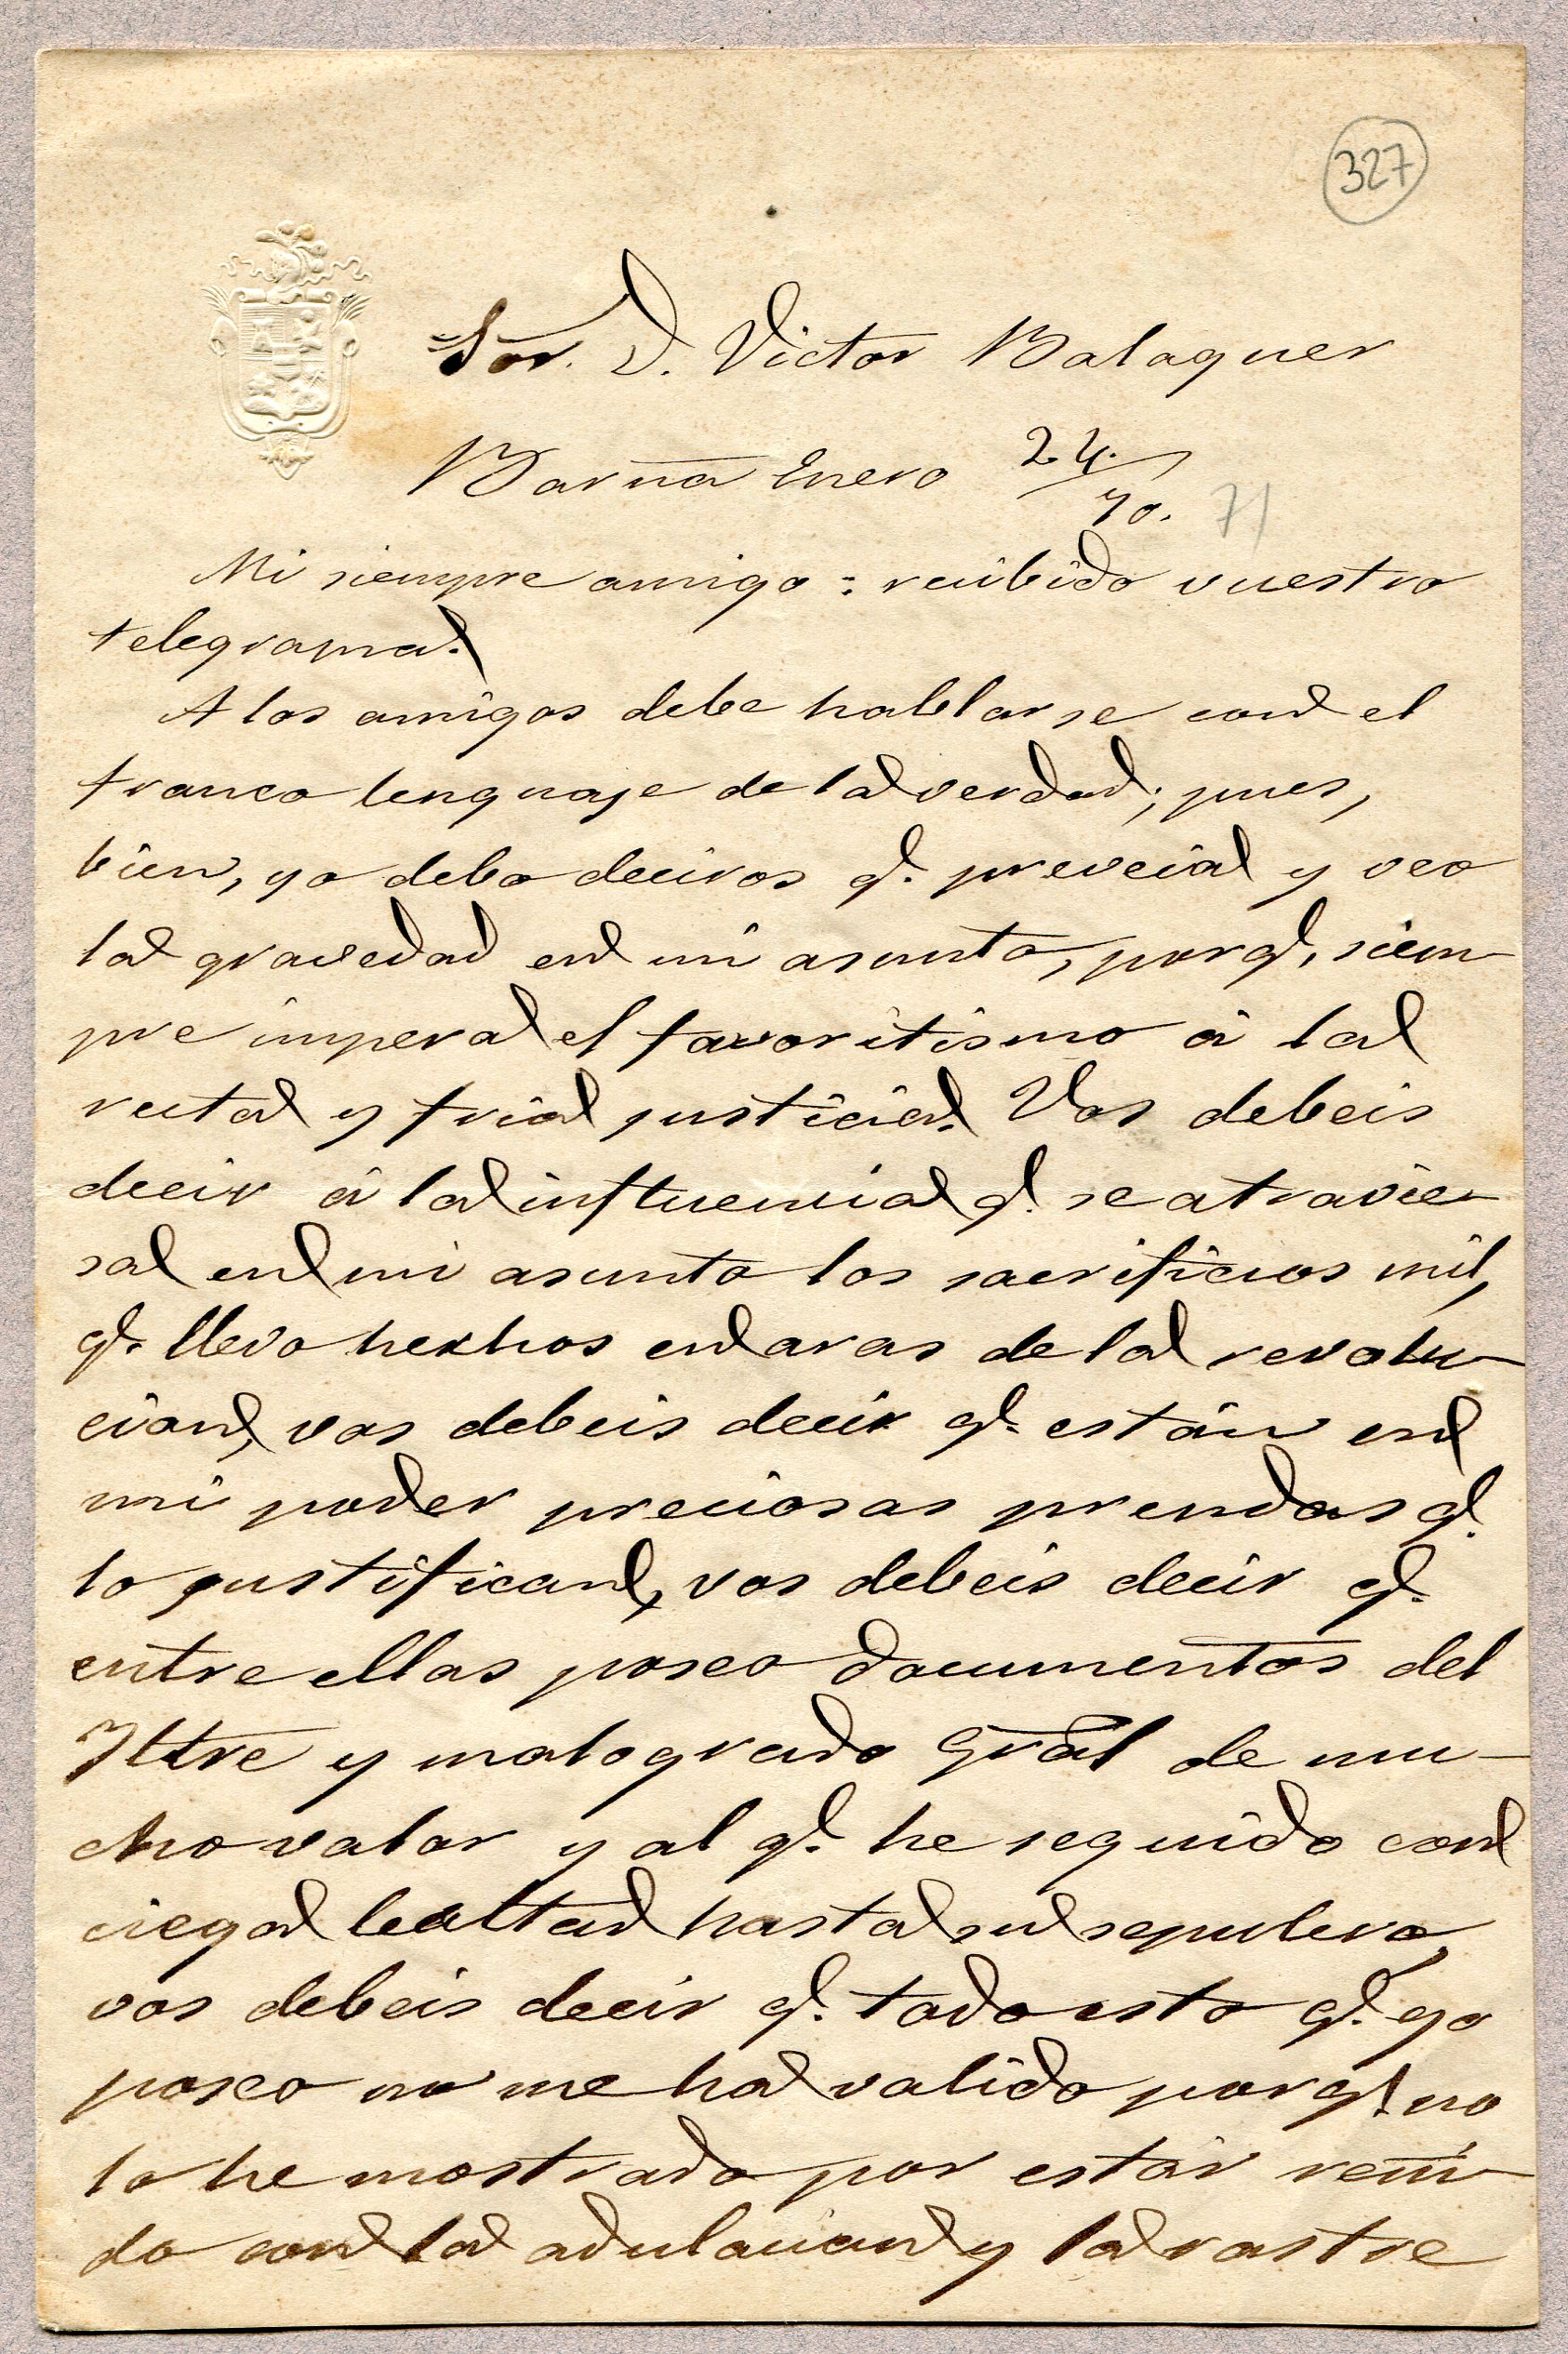 327
Sor. D. Victor Balaguer
Barna Enero 24
70. 71
Mi siempre amigo: recibido vuestro
telegrama.
A los amigos debe hablarse con el
franco lenguaje de la verdad; pues,
bien, yo debo deciros q. preveia y veo
la gravedad en mi asunto, porq. siem-
pre impera el favoritismo á la
recta y fria justicia. Vos debeis
decir á la influencia q. se atravie-
sa en mi asunto los sacrificios mil,
q. llevo hechos en aras de la revolu-
cion, vos debeis decir q. están en
mi poder preciosas prendas q.
lo justifican, vos debeis decir q.
entre ellas poseo documentos del
Iltre y malogrado Gral de mu-
cho valor y al q. he seguido con
ciega lealtad hasta su sepulcro,
vos debeis decir q. todo esto q. yo
poseo no me ha valido porq. no
lo he mostrado por estár reñi-
do con la adulacion y la rastre